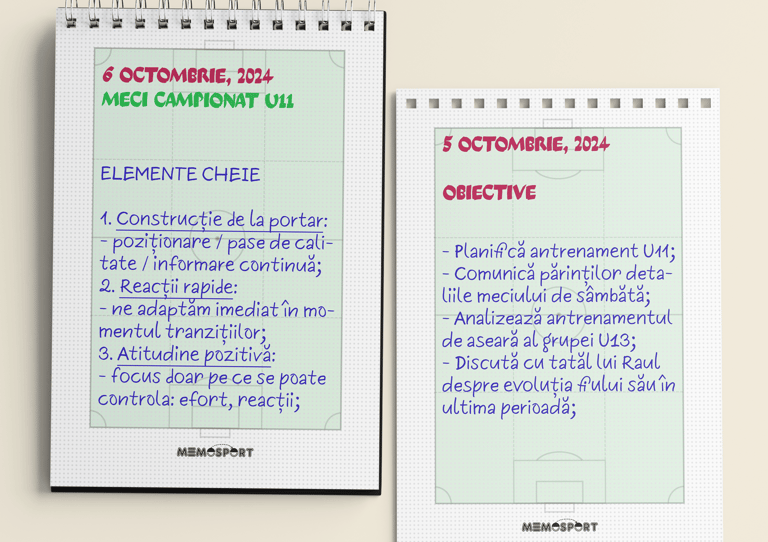 6 OCTOMBRIE, 2024
MECI CAMPIONAT U11
ELEMENTE CHEIE
1. Construcție de la portar:
- poziționare / pase de cali-
tate / informare continuă;
2. Reacții rapide:
- ne adaptăm imediat în mo-
mentul tranzițiilor;
3. Atitudine pozitivă:
- focus doar pe ce se poate
controla: efort, reacții;
MEMOSPORT
5 OCTOMBRIE, 2024
OBIECTIVE
- Planifică antrenament U11;
- Comunică părinților deta-
liile meciului de sâmbătă;
- Analizează antrenamentul
de aseară al grupei U13;
- Discută cu tatăl lui Raul
despre evoluția fiului său în
ultima perioadă;
MEMOSPORT